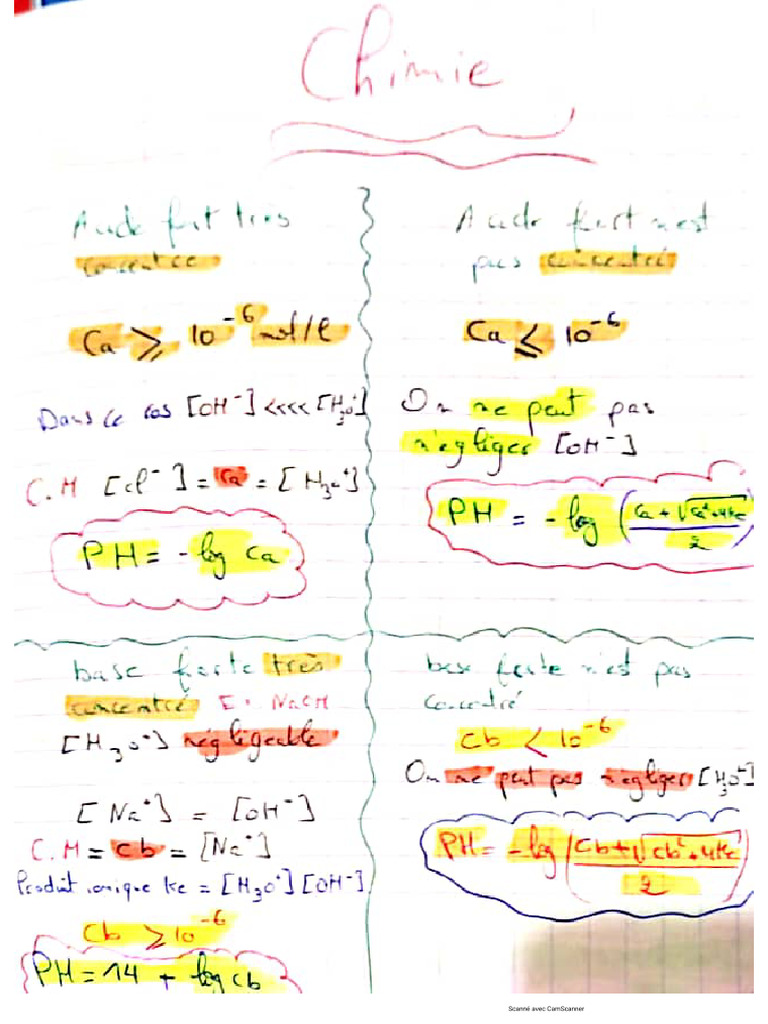 Chimie
Acide fort très
concentré
Ca ⩾ 10⁻⁶ mol/l
Dans ce cas [OH⁻] <<<< [H₃O⁺]
C.M [cl⁻] = Ca = [H₃O⁺]
PH = -log Ca
Acide fort n'est
pas concentré
Ca ≤ 10⁻⁶
On ne peut pas
négliger [OH⁻]
PH = -log (Ca + √Ca²+4Ke / 2)
base forte très
concentré Ex: NaOH
[H₃O⁺] négligeable
[Na⁺] = [OH⁻]
C.M = Cb = [Na⁺]
Produit ionique Ke = [H₃O⁺] [OH⁻]
Cb ⩾ 10⁻⁶
PH = 14 + log Cb
base forte n'est pas
concentré
Cb < 10⁻⁶
On ne peut pas négliger [H₃O⁺]
PH = -log (Cb + √Cb²+4Ke / 2)
Scanné avec CamScanner